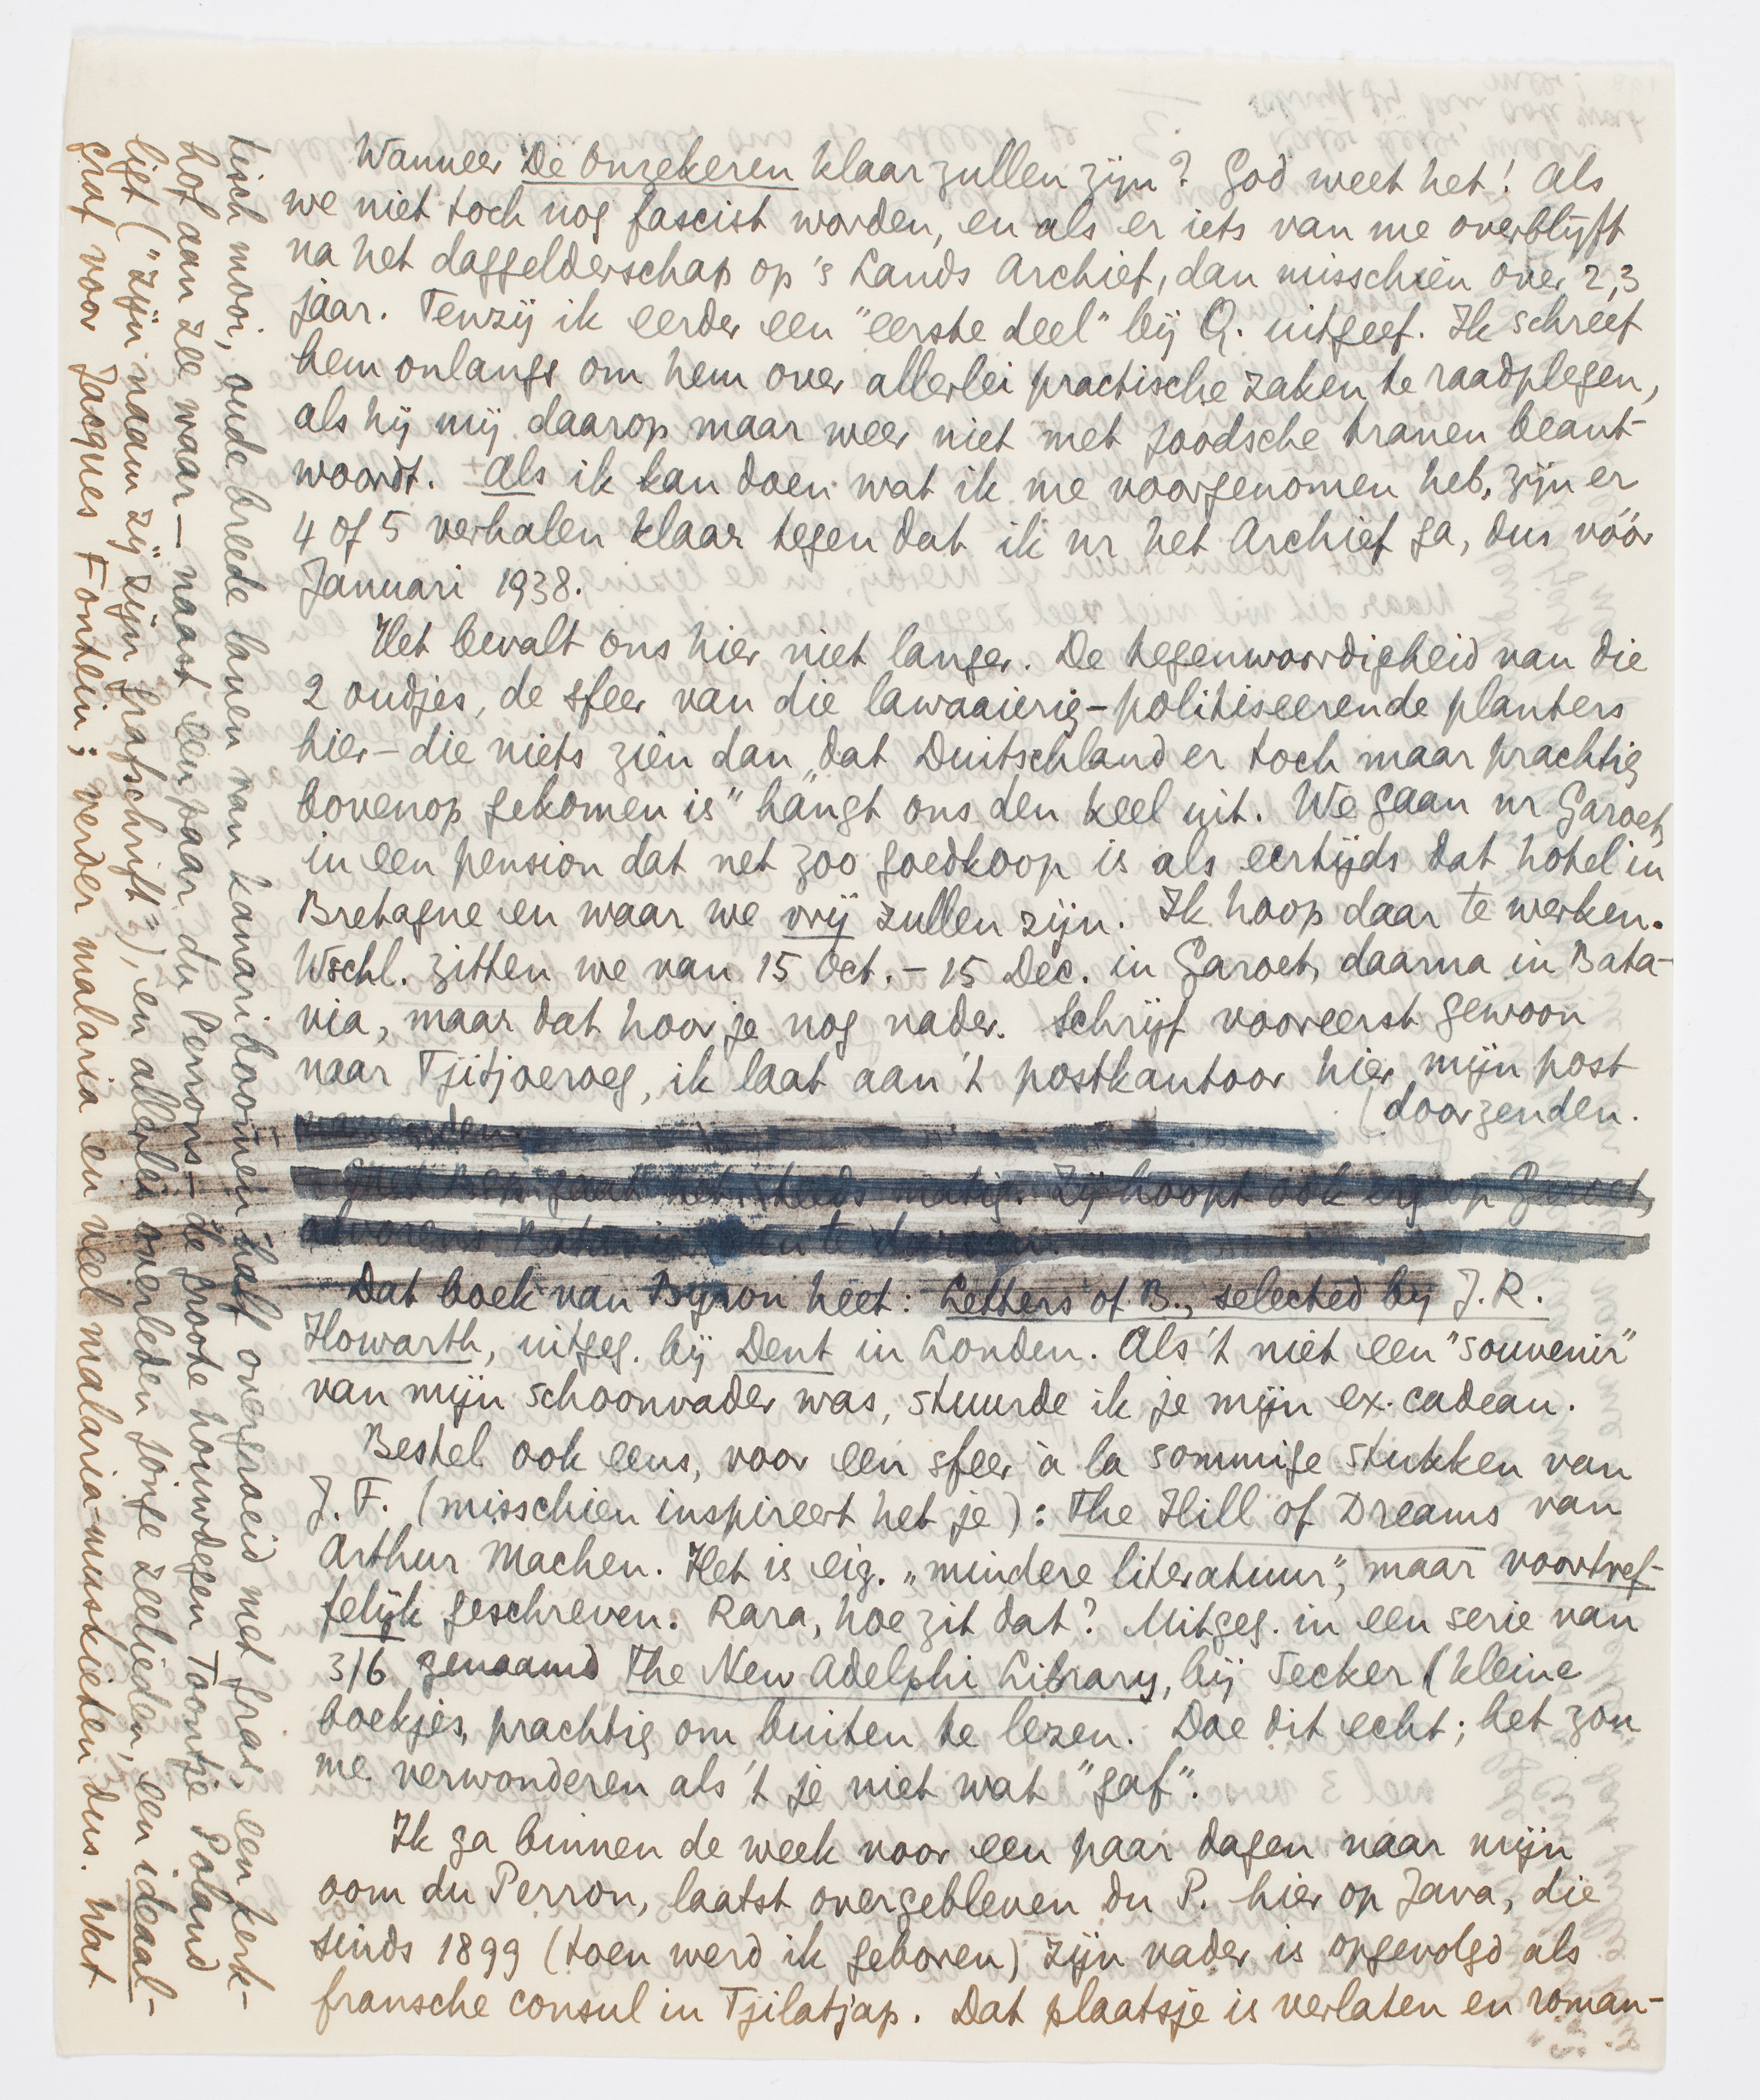 Wanneer De Onzekeren klaar zullen zijn? God weet het! Als
we niet toch nog fascist worden, en als er iets van me overblijft
na het daggelderschap op 's Lands Archief, dan misschien over 2, 3
jaar. Tenzij ik eerder een "eerste deel" bij Q. uitgeef. Ik schreef
hem onlangs om hem over allerlei practische zaken te raadplegen,
als hij mij daarop maar weer niet met joodsche tranen beant-
woordt. – Als ik kan doen wat ik me voorgenomen heb, zijn er
4 of 5 verhalen klaar tegen dat ik nr het Archief ga, dus vóór
Januari 1938.
Het bevalt ons hier niet langer. De tegenwoordigheid van die
2 oudjes, de sfeer van die lawaaierig-politiseerende planters
hier – die niets zien dan "dat Duitschland er toch maar prachtig
bovenop gekomen is" hangt ons den keel uit. We gaan nr Garoet,
in een pension dat net zoo goedkoop is als eertijds dat hotel in
Bretagne en waar we vrij zullen zijn. Ik hoop daar te werken.
Wschl. zitten we van 15 Oct. – 15 Dec. in Garoet, daarna in Bata-
via, maar dat hoor je nog nader. Schrijf vooreerst gewoon
naar Tjitjoeroeg, ik laat aan 't postkantoor hier mijn post
(doorzenden.
gaat het steeds matig. Zij hoopt ook erg op Garoet,
alvorens Batavia aan te durven.
Dat boek van Byron heet: Letters of B., selected by J.R.
Howarth, uitgeg. bij Dent in Londen. Als 't niet een "souvenir"
van mijn schoonvader was, stuurde ik je mijn ex. cadeau.
Bestel ook eens, voor een sfeer à la sommige stukken van
J.F. (misschien inspireert het je): The Hill of Dreams van
Arthur Machen. Het is eig. "mindere literatuur", maar voortref-
felijk geschreven. Rara, hoe zit dat? Uitgeg. in een serie van
3/6 genaamd The New Adelphi Library, bij Secker (kleine
boekjes, prachtig om buiten te lezen. Doe dit echt; het zou
me verwonderen als 't je niet wat "gaf".
Ik ga binnen de week voor een paar dagen naar mijn
oom du Perron, laatst overgebleven du P. hier op Java, die
sinds 1899 (toen werd ik geboren) zijn vader is opgevolgd als
fransche consul in Tjilatjap. Dat plaatsje is verlaten en roman-
tisch mooi, oude breede lanen van kanariboomen half overgroeid met gras, een kerk-
hof aan zee waar – naast een paar du Perrons – de groote houwdegen Toontje Poland
ligt ("zijn naam zij zijn grafschrift"), en allerlei overleden jonge zeelieden, een ideaal-
graf voor Jacques Fontein; verder malaria en veel malaria-muskieten dus. Wat